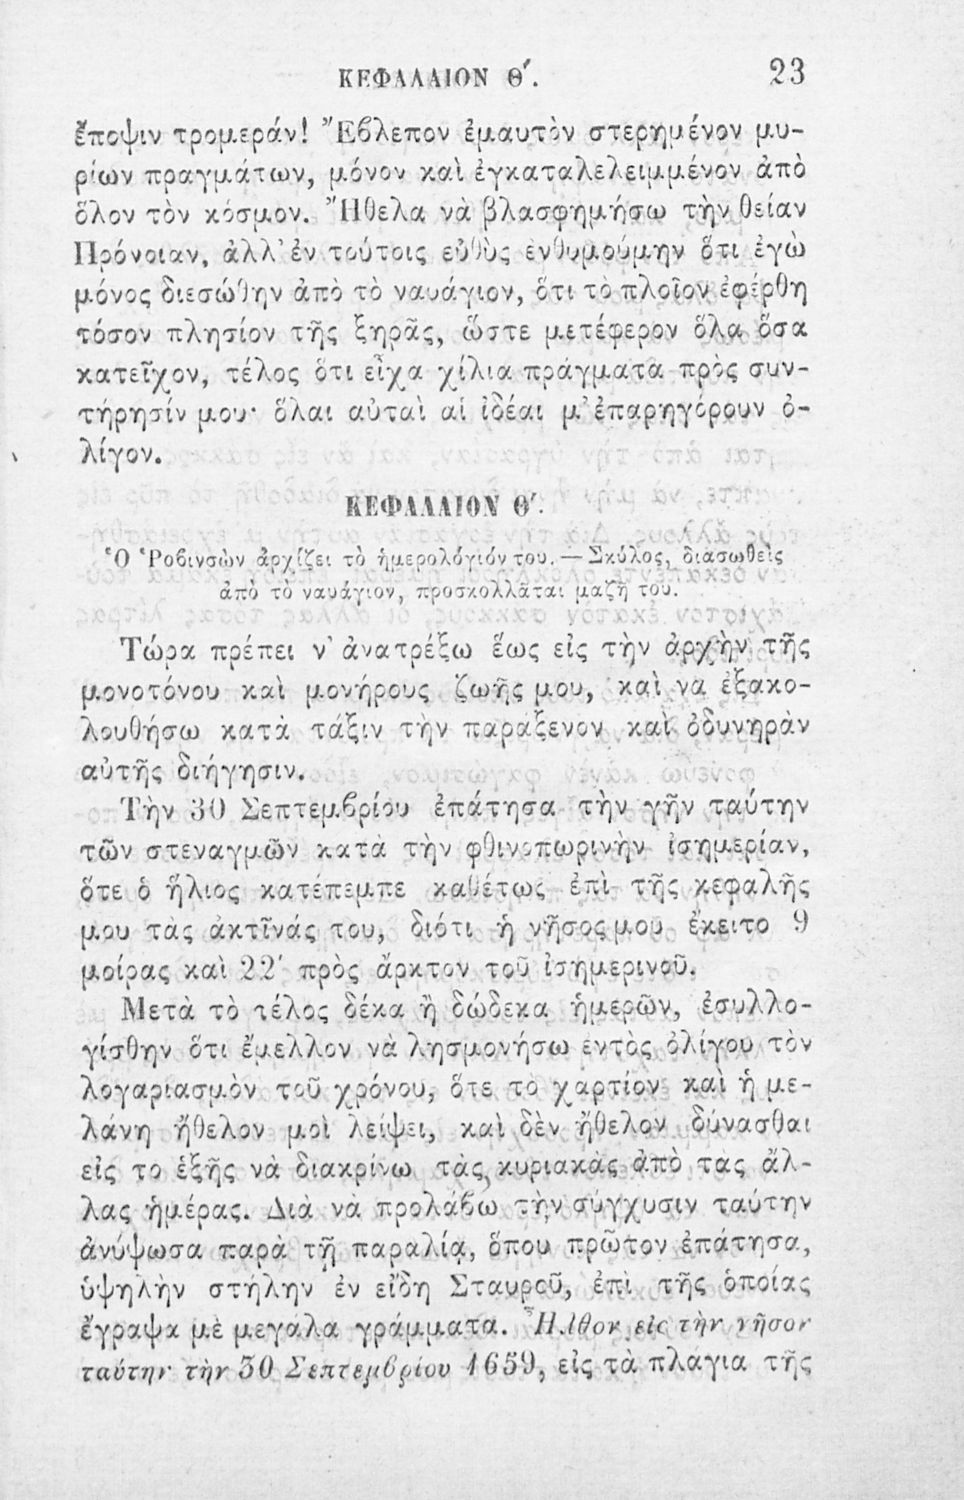 ΚΕΦΑΛΑΙΟΝ Θ΄. 23
ἔποψιν τρομεράν! Ἔβλεπον ἐμαυτὸν στερημένον μυ-
ρίων πραγμάτων, μόνον καὶ ἐγκαταλελειμμένον ἀπὸ
ὅλον τὸν κόσμον. Ἤθελα νὰ βλασφημήσω τὴν θείαν
Πρόνοιαν, ἀλλ' ἐν τούτοις εὐθὺς ἐνθυμούμην ὅτι ἐγὼ
μόνος διεσώθην ἀπὸ τὸ ναυάγιον, ὅτι τὸ πλοῖον ἐφέρθη
τόσον πλησίον τῆς ξηρᾶς, ὥστε μετέφερον ὅλα ὅσα
κατεῖχον, τέλος ὅτι εἶχα χίλια πράγματα πρὸς συν-
τήρησίν μου· ὅλαι αὐταὶ αἱ ἰδέαι μ' ἐπαρηγόρουν ὀ-
λίγον.
ΚΕΦΑΛΑΙΟΝ Θ΄.
Ὁ Ῥοβινσὼν ἀρχίζει τὸ ἡμερολόγιόν του. — Σκύλος, διασωθεὶς
ἀπὸ τὸ ναυάγιον, προσκολλᾶται μαζῆ του.
Τώρα πρέπει ν' ἀνατρέξω ἕως εἰς τὴν ἀρχὴν τῆς
μονοτόνου καὶ μονήρους ζωῆς μου, καὶ νὰ ἐξακο-
λουθήσω κατὰ τάξιν τὴν παράξενον καὶ ὀδυνηρὰν
αὐτῆς διήγησιν.
Τὴν 30 Σεπτεμβρίου ἐπάτησα τὴν γῆν ταύτην
τῶν στεναγμῶν κατὰ τὴν φθινοπωρινὴν ἰσημερίαν,
ὅτε ὁ ἥλιος κατέπεμπε καθέτως ἐπὶ τῆς κεφαλῆς
μου τὰς ἀκτῖνάς του, διότι ἡ νῆσος μου ἔκειτο 9
μοίρας καὶ 22' πρὸς ἄρκτον τοῦ ἰσημερινοῦ.
Μετὰ τὸ τέλος δέκα ἢ δώδεκα ἡμερῶν, ἐσυλλο-
γίσθην ὅτι ἔμελλον νὰ λησμονήσω ἐντὸς ὀλίγου τὸν
λογαριασμὸν τοῦ χρόνου, ὅτε τὸ χαρτίον καὶ ἡ με-
λάνη ἤθελον μοὶ λείψει, καὶ δὲν ἤθελον δύνασθαι
εἰς το ἑξῆς νὰ διακρίνω τὰς κυριακὰς ἀπὸ τὰς ἄλ-
λας ἡμέρας. Διὰ νὰ προλάβω τὴν σύγχυσιν ταύτην
ἀνύψωσα παρὰ τῇ παραλίᾳ, ὅπου πρῶτον ἐπάτησα,
ὑψηλὴν στήλην ἐν εἴδη Σταυροῦ, ἐπὶ τῆς ὁποίας
ἔγραψα μὲ μεγάλα γράμματα. Ἦλθον εἰς τὴν νῆσον
ταύτην τὴν 30 Σεπτεμβρίου 1659, εἰς τὰ πλάγια τῆς